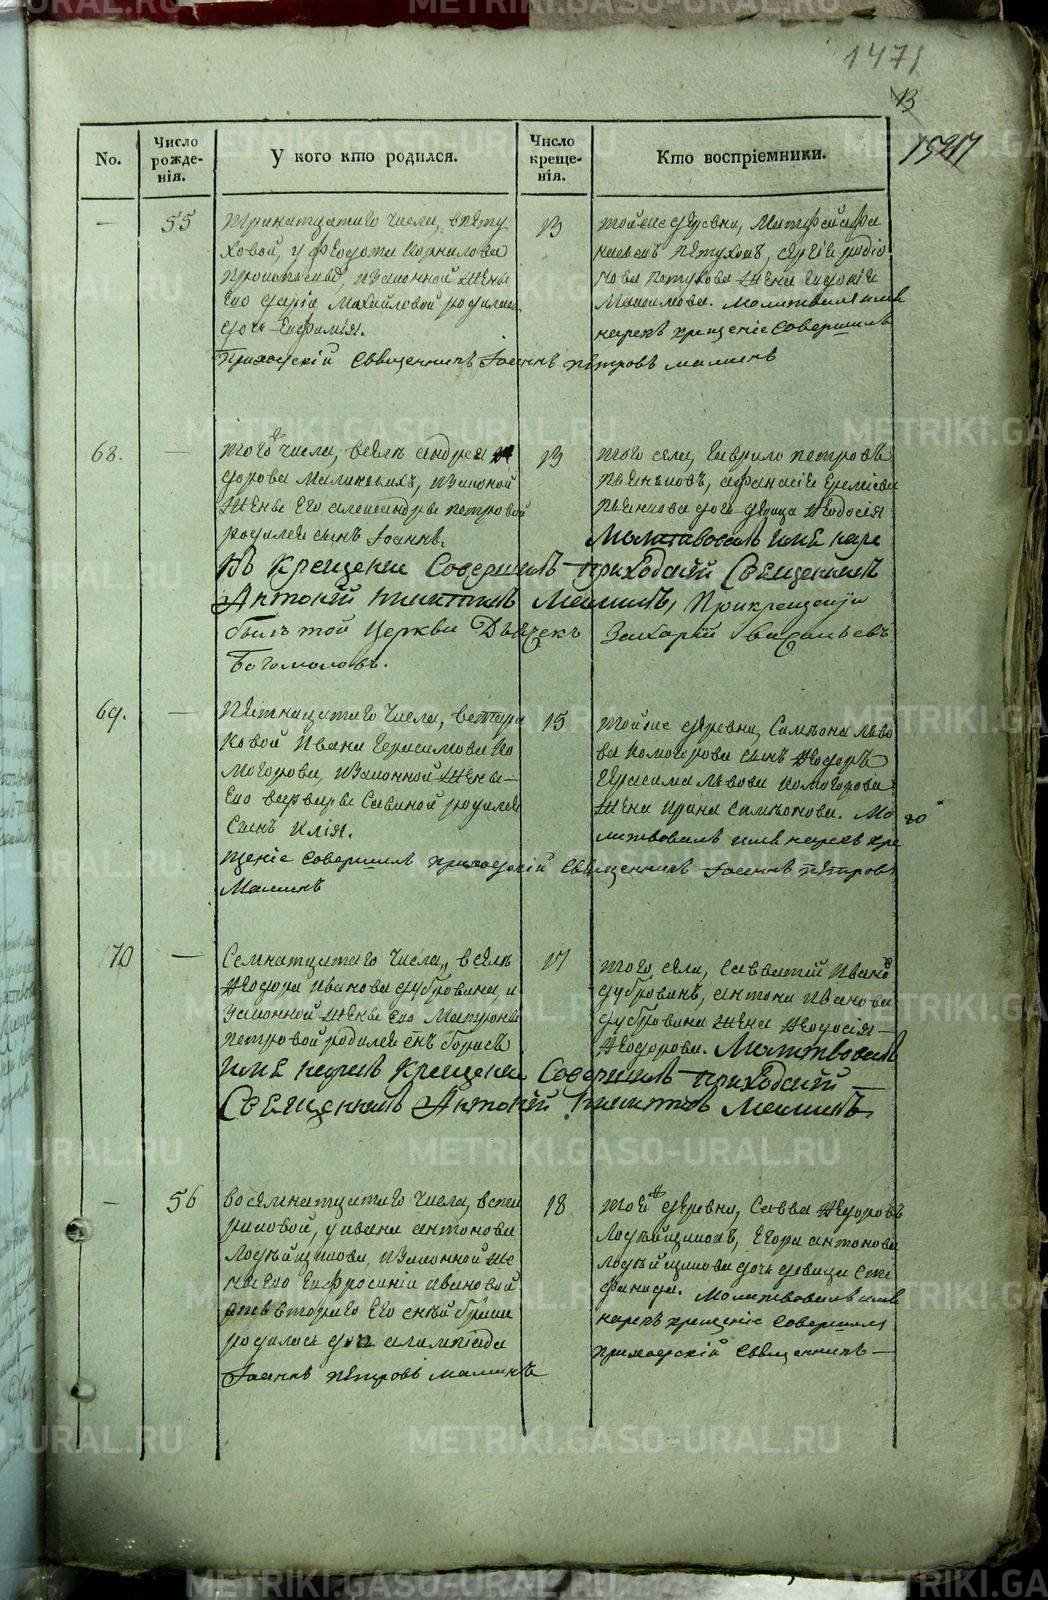 1471
13
No.
Число рожде-нія.
У кого кто родился.
Число креще-нія.
Кто воспріемники.
55
Тринатцатаго числа, впѣту
ховой, у Феодота Корнилова
изаконной жены
его Даріи Михайловой родилась
дочь Евфимія.
13
тойже деревни, Матфей Афа
насьевъ Пѣтуховъ, Сергія родіо
нова Пѣтухова жена Евдокія
Максимова. Молитвовалъ имя
нарекъ крещеніе совершилъ
Приходскій Священникъ Іоаннъ Пѣтровъ Маминъ
68.
того числа, вселѣ Андрея Ѳе
дорова Малинькихъ, изаконой
жены его Александры Пѣтровой
родился сынъ Іоаннъ.
13
того села, Гаврило Пѣтровъ
Пьянковъ, Афанасія Еремѣева
Пьянкова дочь девица Ѳеодосія
Молитвовалъ имя наре
къ Крещеніе Совершилъ приходскій Священникъ
Антоній Никитинъ Маминъ, При крещеніи
былъ той Церкви Дьячекъ Захарій Васильевъ
Богомоловъ.
69.
Пятнацатаго числа,
ковой Ивана Герасимова Ко
могорова, изаконной жены
его варвары Савиной родился
сынъ Илія.
15
тойже деревни, Симеона Льво
ва Комогорова сынъ Ѳеодоръ
Герасима Львова Комогорова
жена Ирина Симеонова. Мо
литвовалъ имя нарекъ кре
щеніе совершилъ приходскій Священникъ Іоаннъ Пѣтровъ
Маминъ
70
Семнатцатаго числа, вселѣ
Ѳеодора Иванова Дубровина, и
законной жены его Матроны
Пѣтровой родился сынъ Борисъ
17
того села, Савватій Ивановъ
Дубровинъ, Антона Иванова
Дубровина жена Ѳеодосія
Ѳеодорова. Молитвовалъ
имя нарекъ Крещеніе Совершилъ приходскій
Священникъ Антоній Никитинъ Маминъ
56
Восемнатцатаго числа,
риковой, у Ивана Антонова
Лодѣйщикова, изаконной же
ны его Евфросиніи Ивановой
отъ втораго его брака
родилась дочь Алимпіада
18
тойже деревни, Савва Ѳедоровъ
Лодѣйщиковъ, Егора Антонова
Лодѣйщикова дочь девица Сте
фанида. Молитвовалъ имя
нарекъ крещеніе совершилъ
приходскій Священникъ
Іоаннъ Пѣтровъ Маминъ
METRIKI.GASO-URAL.RU